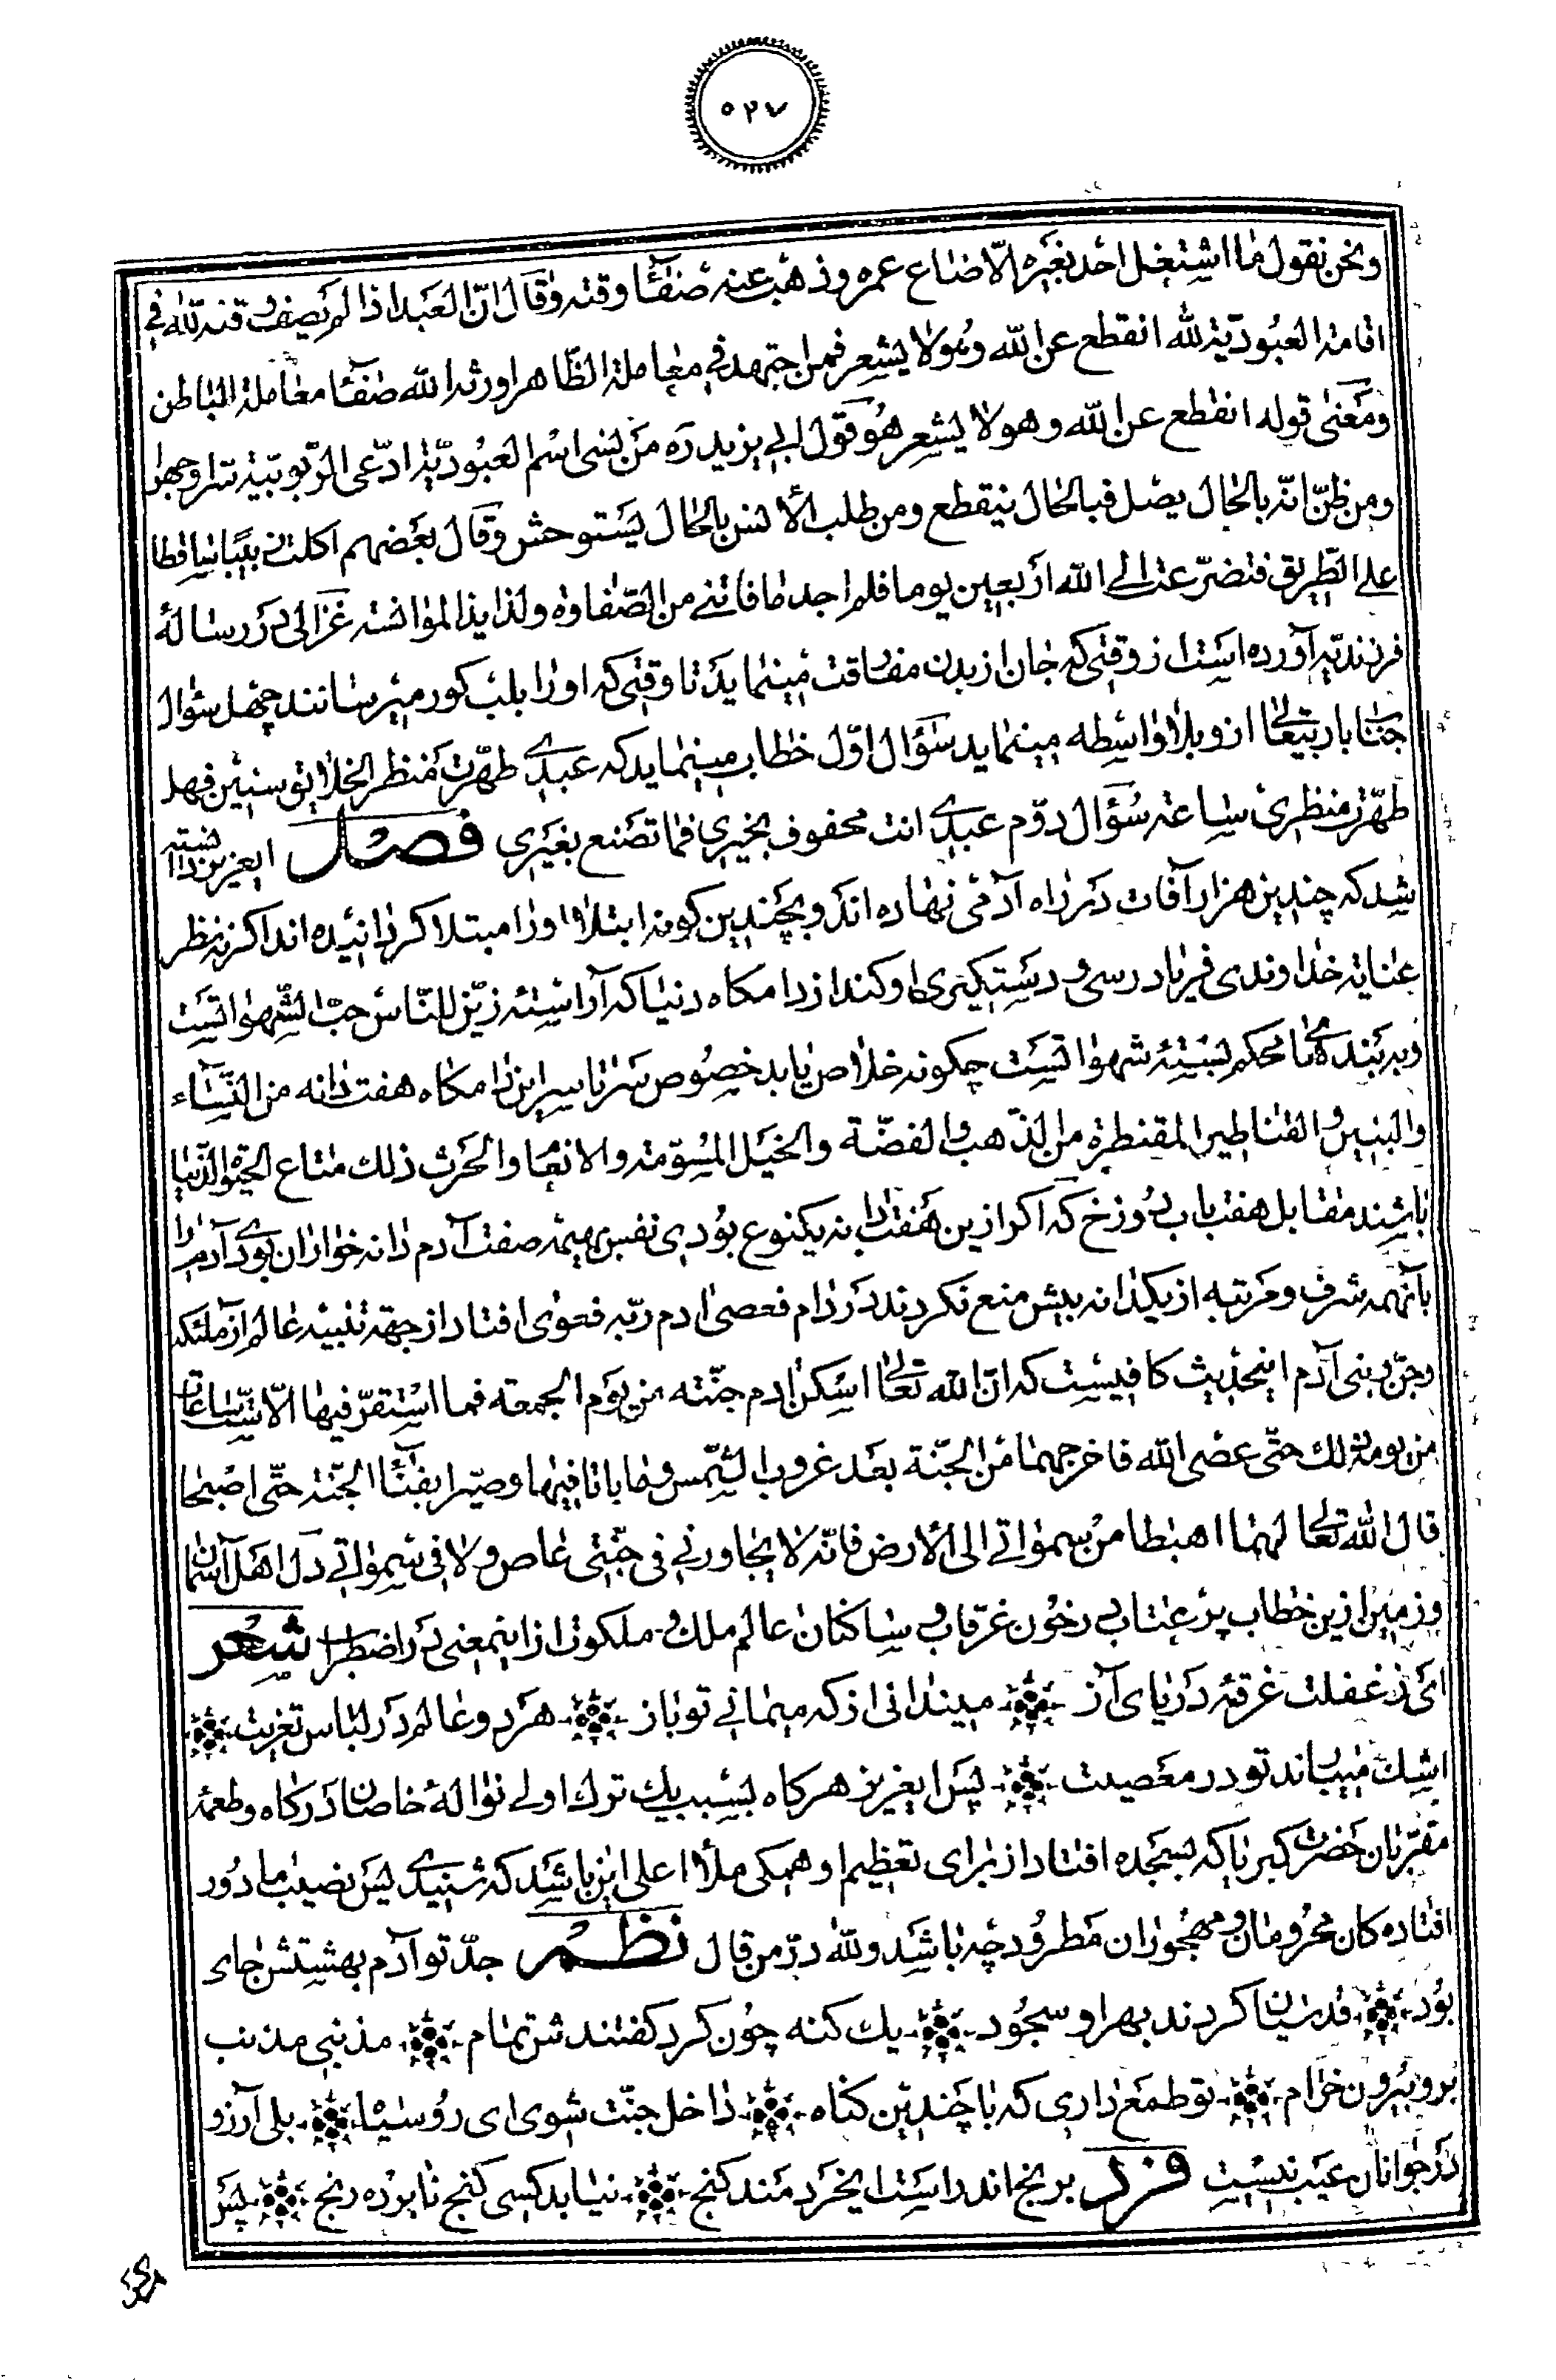 ٥٢٧
ونحن نقول ما اشتغل احد بغيره الّا ضاع عمره وذهب عنه صفآء وقته وقال انّ العبد اذا لم يصف وقته لله في
اقامة العبوديّة لله انقطع عن الله وهو لا يشعر فمن اجتهد في معاملة الظّاهر اورثه الله صفآء معاملة الباطن
ومعنى قوله انقطع عن الله وهو لا يشعر هو قول ابي يزيد ره من نسى اسم العبوديّة ادّعى الرّبوبيّة سرا وجهرا
ومن ظنّ انّه بالحال يصل فبالحال ينقطع ومن طلب الأنس بالحال يستوحش وقال بعضهم اكلت نبيا ساقطا
على الطّريق فتضرّعت الى الله اربعين يوما فلم اجد ما فاتنى من الصّفاوة ولذايذ الموانسة غزالى در رسالۀ
فرزنديّه آورده است از وقتى كه جان از بدن مفارقت مينمايد تا وقتى كه اورا بلب كور ميرسانند چهل سؤال
جناب باريتعالى ازو بلا واسطه مينمايد سؤال اوّل خطاب مينمايد كه عبدي طهّرت منظر الخلايق سنين فهل
طهّرت منظرى ساعة سؤال دوّم عبدي انت محفوف بخيري فما تصنع بغيري فصل ايعزيز دانسته
شد كه چندين هزار آفات در راه آدمى نهاده اند و بچندين كونه ابتلا اورا مبتلا كردانيده اند اكر نه نظر
عنايت خداوندى فرياد رسى و دستكيرى او كند از دامكاه دنيا كه آراسته زيّن للنّاس حبّ الشّهواتست
و بر بندهاى محكم بستۀ شهواتست چكونه خلاص يابد خصوص سرتاسر اين دامكاه هفت دانه من النّسآء
والبنين والقناطير المقنطرة من الذّهب والفضّة والخيل المسوّمة والانعام والحرث ذلك متاع الحيوة الدّنيا
باشند مقابل هفت باب دوزخ كه اكر ازين هفت دانه يكنوع بودى نفس بهيمه صفت آدم دانه خوار ان بودى آدم را
بآنهمه شرف و مرتبه از يكدانه بيش منع نكردند در دام فعصى ادم ربّه فغوى افتاد از جهة تنبيه عالم از ملئكه
وجنّ و بنى آدم اينحديث كافيست كه انّ الله تعالى اسكن ادم جنّته من يوم الجمعة فما استقرّ فيها الّا ستّ ساعات
من يومه ذلك حتّى عصى الله فاخرجهما من الجنّة بعد غروب الشّمس وما باتا فيها وصيّرا بفنآء الجنّة حتّى اصبحا
قال الله تعالى لهما اهبطا من سمواتي الى الأرض فانّه لا يجاورني في جنّتى عاص ولا في سمواتي دل اهل آسمان
و زمين ازين خطاب پر عتاب در خون غرقاب و ساكنان عالم ملك و ملكوت از اينمعنى در اضطراب شعر
اى ز غفلت غرقۀ درياى آز ميندانى از كه ميمانى تو باز هر دو عالم در لباس تعزيت
اشك ميبارند تو در معصيت پس ايعزيز هر كاه بسبب يك ترك اولى نوالۀ خاصان دركاه و طعمۀ
مقرّبان حضرت كبريا كه بسجده افتاد از براى تعظيم او همكى ملأ اعلى اين باشد كه شنيدى پس نصيب ما دور
افتاده كان محرومان و مهجوران مطرود چه باشد ولله درّ من قال نظم جدّ تو آدم بهشتش جاى
بود قدسيان كردند بهر او سجود يك كنه چون كرد كفتندش تمام مذنبى مذنب
برو بيرون خرام تو طمع دارى كه با چندين كناه داخل جنّت شوى اى روسياه بلى آرزو
در جوانان عيب نيست فرد برنج اندر است ايخردمند كنج نيابد كسى كنج نابرده رنج پس